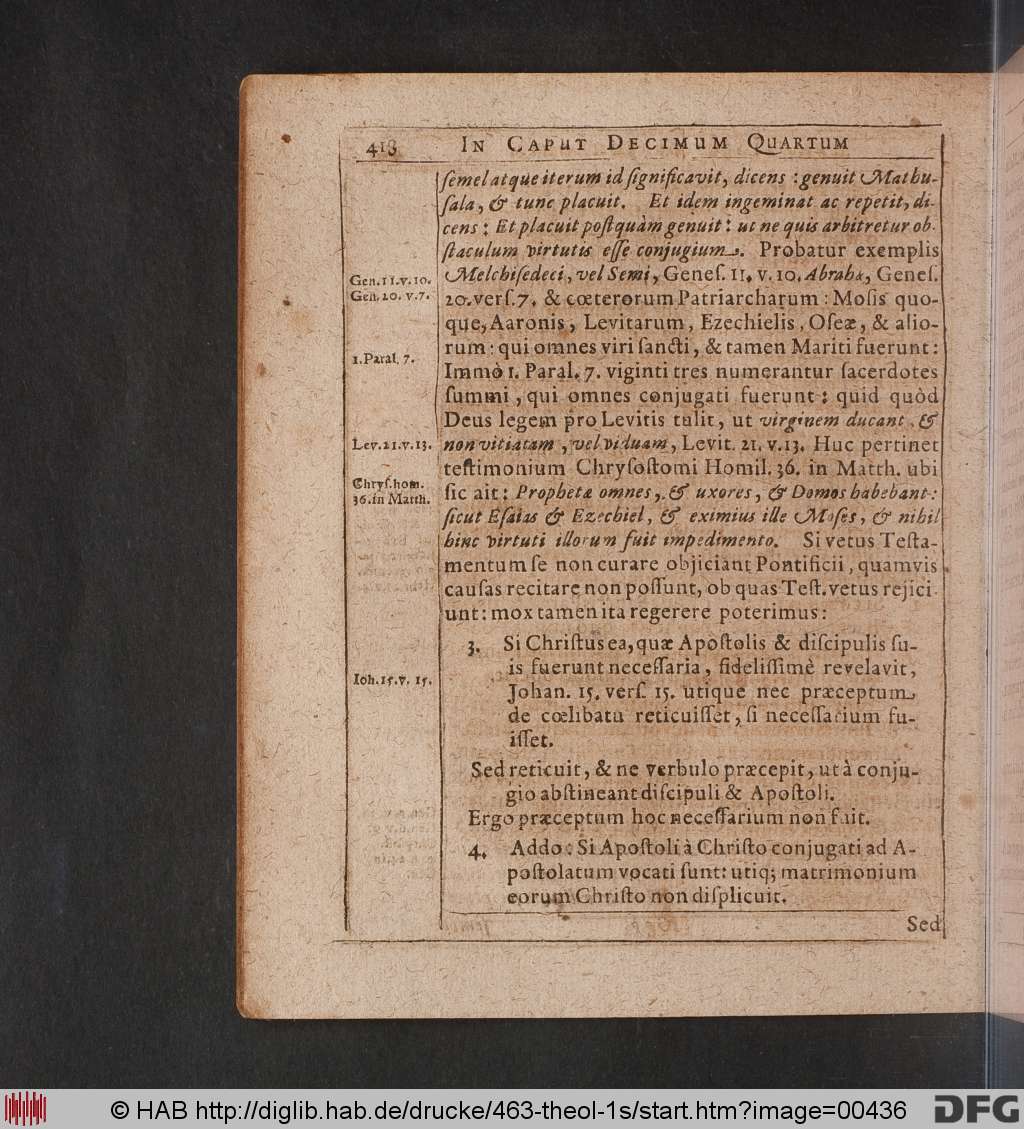 418 IN CAPUT DECIMUM QUARTUM
ſemel atque iterum id ſignificavit, dicens : genuit Mathu-
ſala, & tunc placuit. Et idem ingeminat ac repetit, di-
cens : Et placuit poſtquàm genuit : ut ne quis arbitretur ob-
ſtaculum virtutis eſſe conjugium. Probatur exemplis
Gen. 11. v. 10. Melchiſedeci, vel Semi, Geneſ. 11. v. 10. Abrahæ, Geneſ.
Gen. 20. v. 7. 20. verſ. 7. & cœterorum Patriarcharum : Moſis quo-
que, Aaronis, Levitarum, Ezechielis, Oſeæ, & alio-
1. Paral. 7. rum : qui omnes viri ſancti, & tamen Mariti fuerunt :
Immò 1. Paral. 7. viginti tres numerantur ſacerdotes
ſummi, qui omnes conjugati fuerunt : quid quòd
Deus legem pro Levitis tulit, ut virginem ducant, &
Lev. 21. v. 13. non vitiatam, vel viduam, Levit. 21. v. 13. Huc pertinet
teſtimonium Chryſoſtomi Homil. 36. in Matth. ubi
Chryſ. hom. ſic ait : Prophetæ omnes, & uxores, & Domos habebant :
36. in Matth.
ſicut Eſaias & Ezechiel, & eximius ille Moſes, & nihil
hinc virtuti illorum fuit impedimento. Si vetus Teſta-
mentum ſe non curare objiciant Pontificii, quamvis
cauſas recitare non poſſunt, ob quas Teſt. vetus rejici-
unt : mox tamen ita regerere poterimus :
3. Si Chriſtus ea, quæ Apoſtolis & diſcipulis ſu-
is fuerunt neceſſaria, fideliſſimè revelavit,
Ioh. 15. v. 15. Johan. 15. verſ. 15. utique nec præceptum
de cœlibatu reticuiſſet, ſi neceſſarium fu-
iſſet.
Sed reticuit, & ne verbulo præcepit, ut à conju-
gio abſtineant diſcipuli & Apoſtoli.
Ergo præceptum hoc neceſſarium non fuit.
4. Addo : Si Apoſtoli à Chriſto conjugati ad A-
poſtolatum vocati ſunt : utiq; matrimonium
eorum Chriſto non diſplicuit.
Sed
© HAB http://diglib.hab.de/drucke/463-theol-1s/start.htm?image=00436
DFG